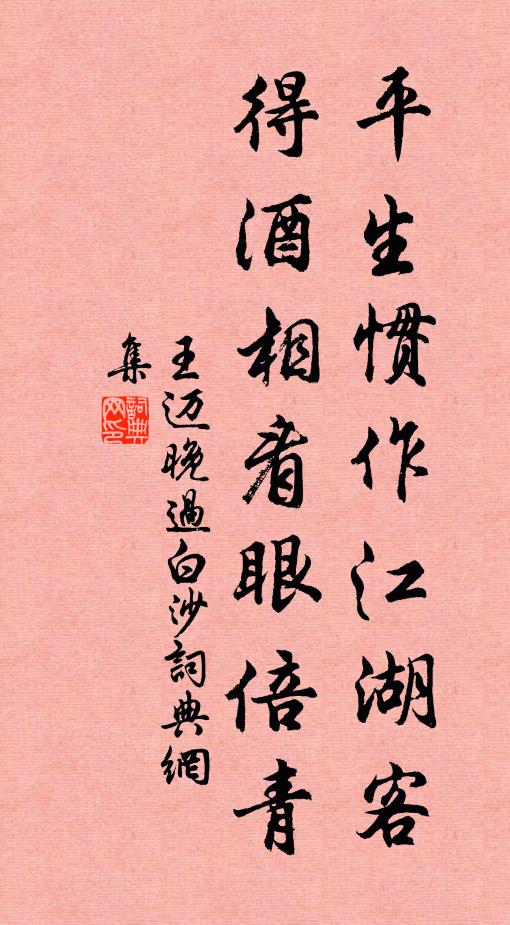 平生惯作江湖客
得酒相看眼倍青
王迈晚過白沙詞典網
集
詞典網印